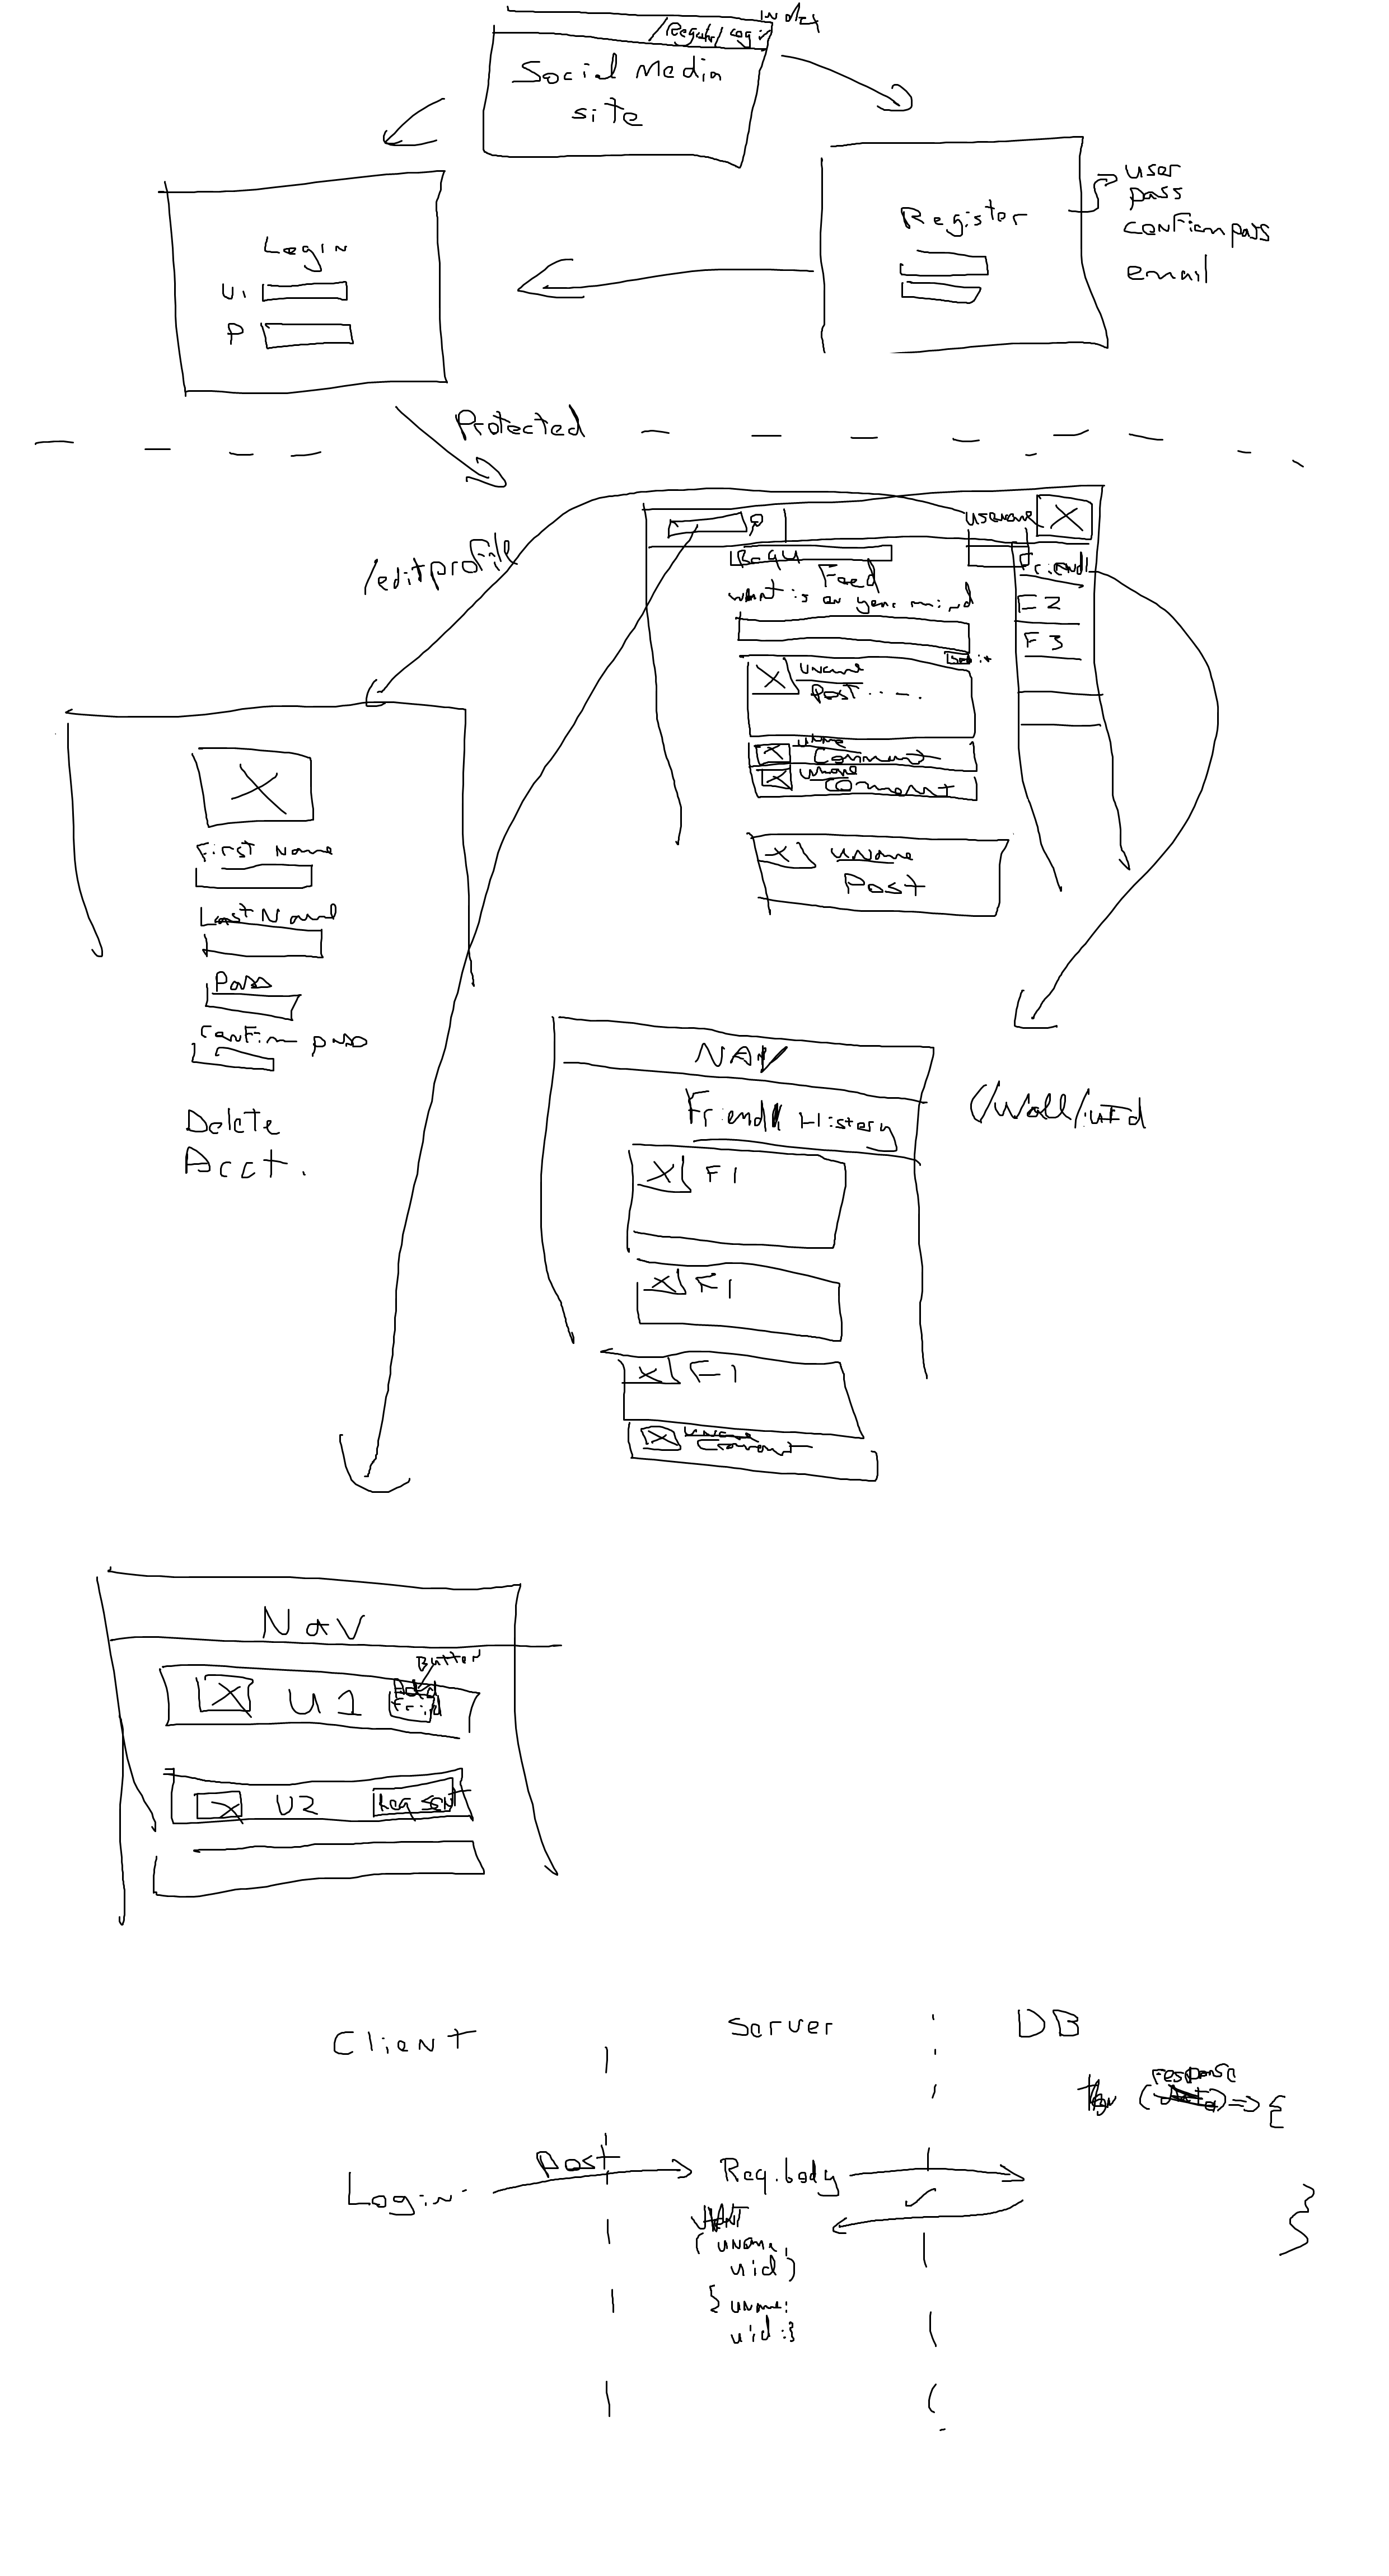 index
/Register/Login
Social Media
site
Login
U:
P
Register
user
pass
confirm pass
email
Protected
/editprofile
username
Friend1
F2
F3
Feed
what is on your mind
uname
Post ....
uname
Comment
uname
Comment
uname
Post
First Name
Last Name
Pass
Confirm pass
Delete
Acct.
NAV
Friend1 History
/Wall/:uId
F1
F1
F1
uname
Comment
Nav
Button
Add
Friend
U1
U2
Req sent
Client
Server
DB
response
then ( ) => {
Post
Login
Req.body
}
(uname,
uid)
{uname:
uid:}